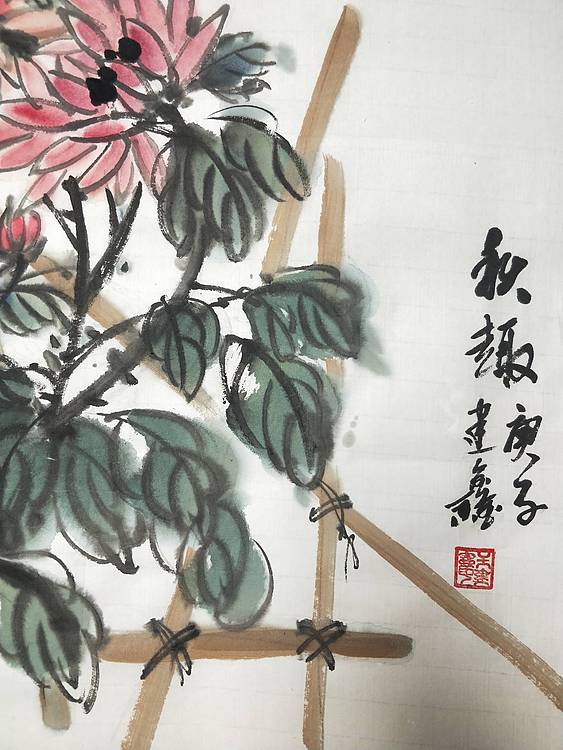 秋趣
庚子
建鑫